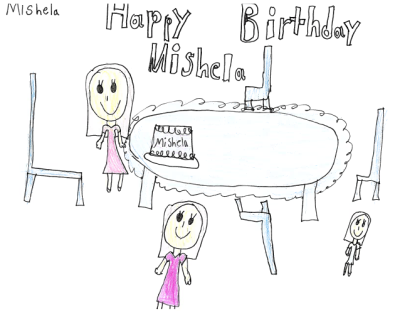 Mishela
Happy Birthday
Mishela
Mishela